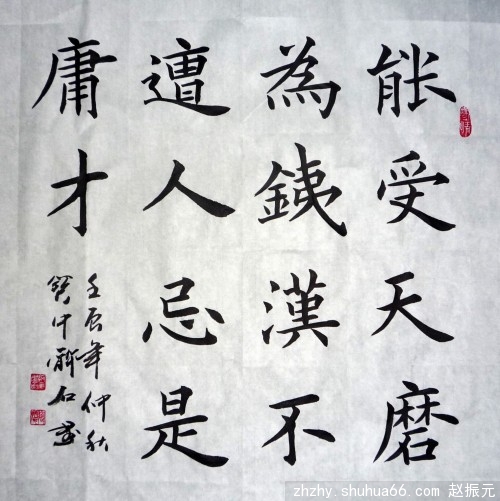 能受天磨
為銕漢不
遭人忌是
庸才
壬辰年仲秋
石書
zhzhy.shuhua66.com 赵振元